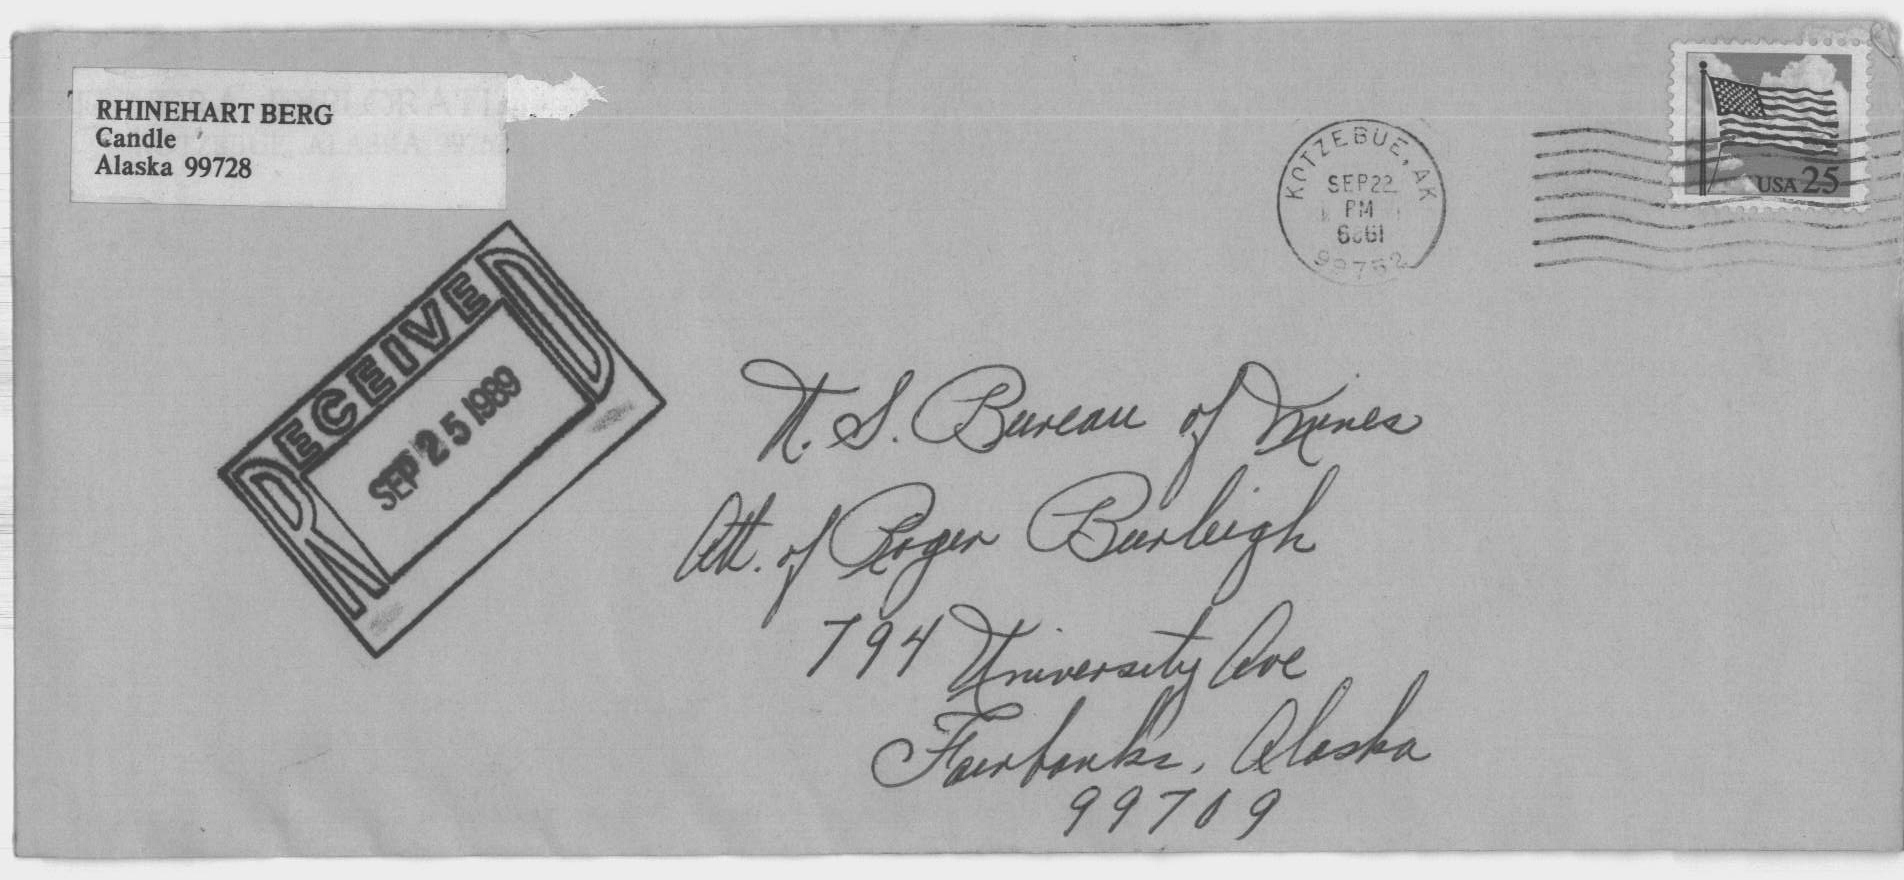 RHINEHART BERG
Candle
Alaska 99728
KOTZEBUE, AK
SEP 22
PM
99752
USA 25
RECEIVED
SEP 25 1989
U. S. Bureau of Mines
Att. of Roger Burleigh
794 University Ave
Fairbanks, Alaska
99709